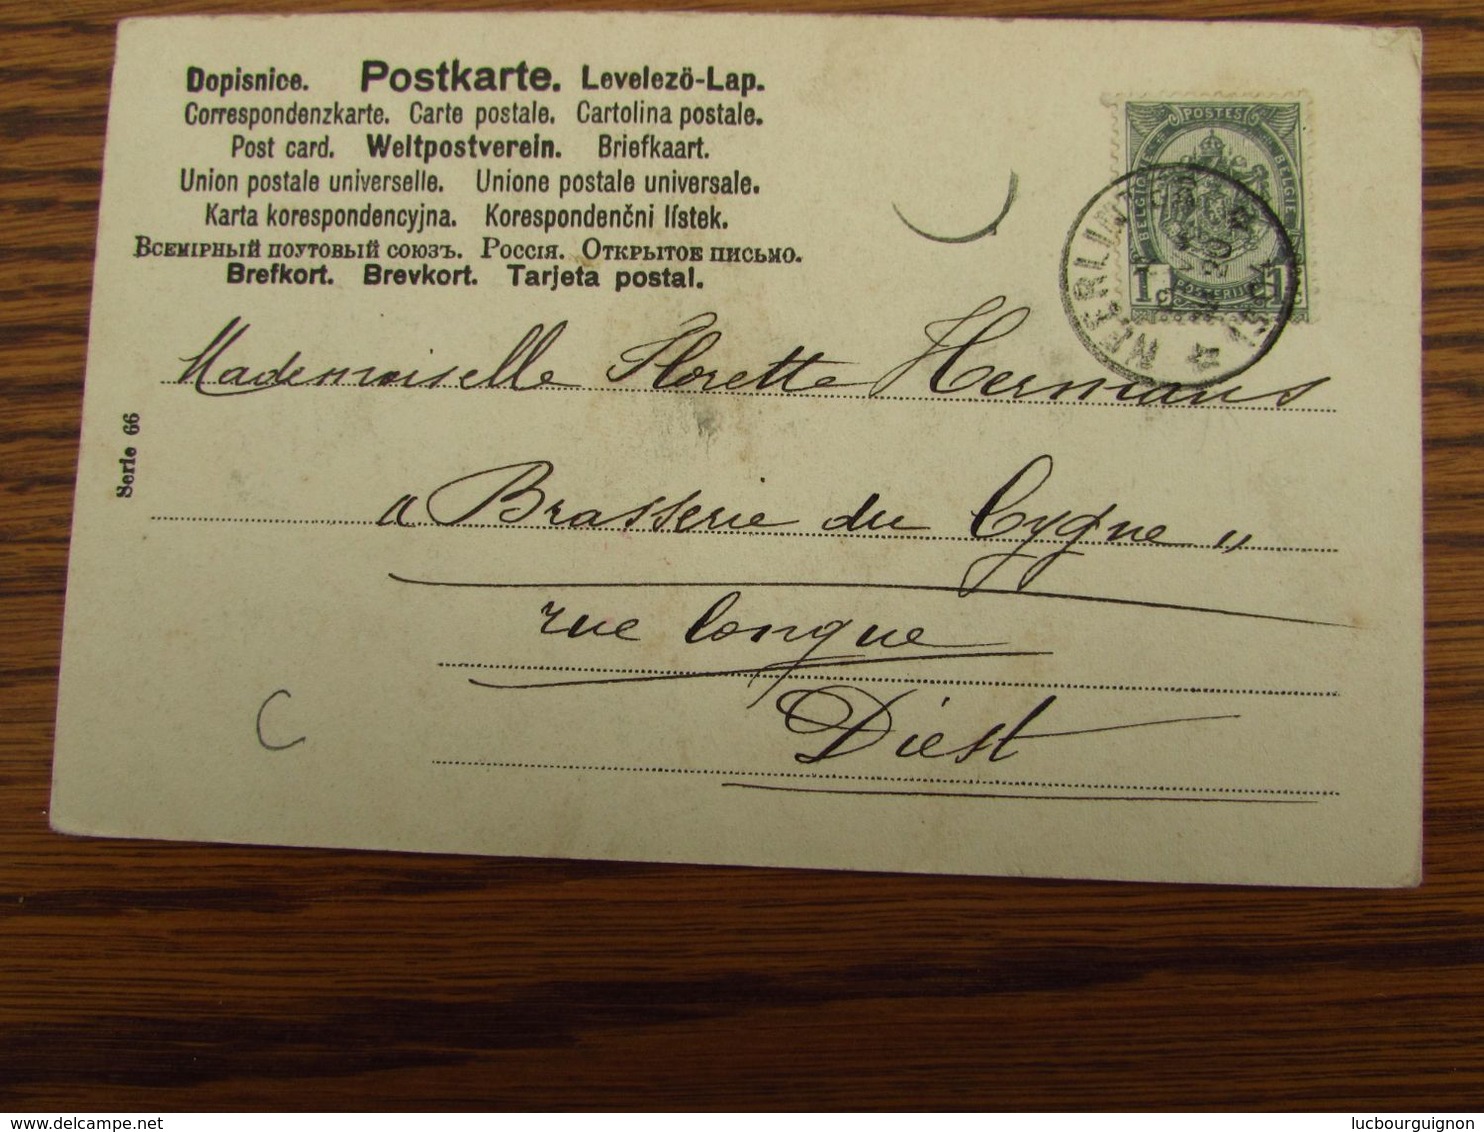 Dopisnice. Postkarte. Levelező-Lap.
Correspondenzkarte. Carte postale. Cartolina postale.
Post card. Weltpostverein. Briefkaart.
Union postale universelle. Unione postale universale.
Karta korespondencyjna. Korespondenčni lístek.
Всемірный поутовый союзъ. Россія. Открытое письмо.
Brefkort. Brevkort. Tarjeta postal.
POSTES
BELGIQUE BELGIË
1c POSTERIJEN 1c
NEERLINT
Mademoiselle Florette Hermans
Serie 66
« Brasserie du Cygne »
rue longue
Diest
C
delcampe.net
lucbourguignon